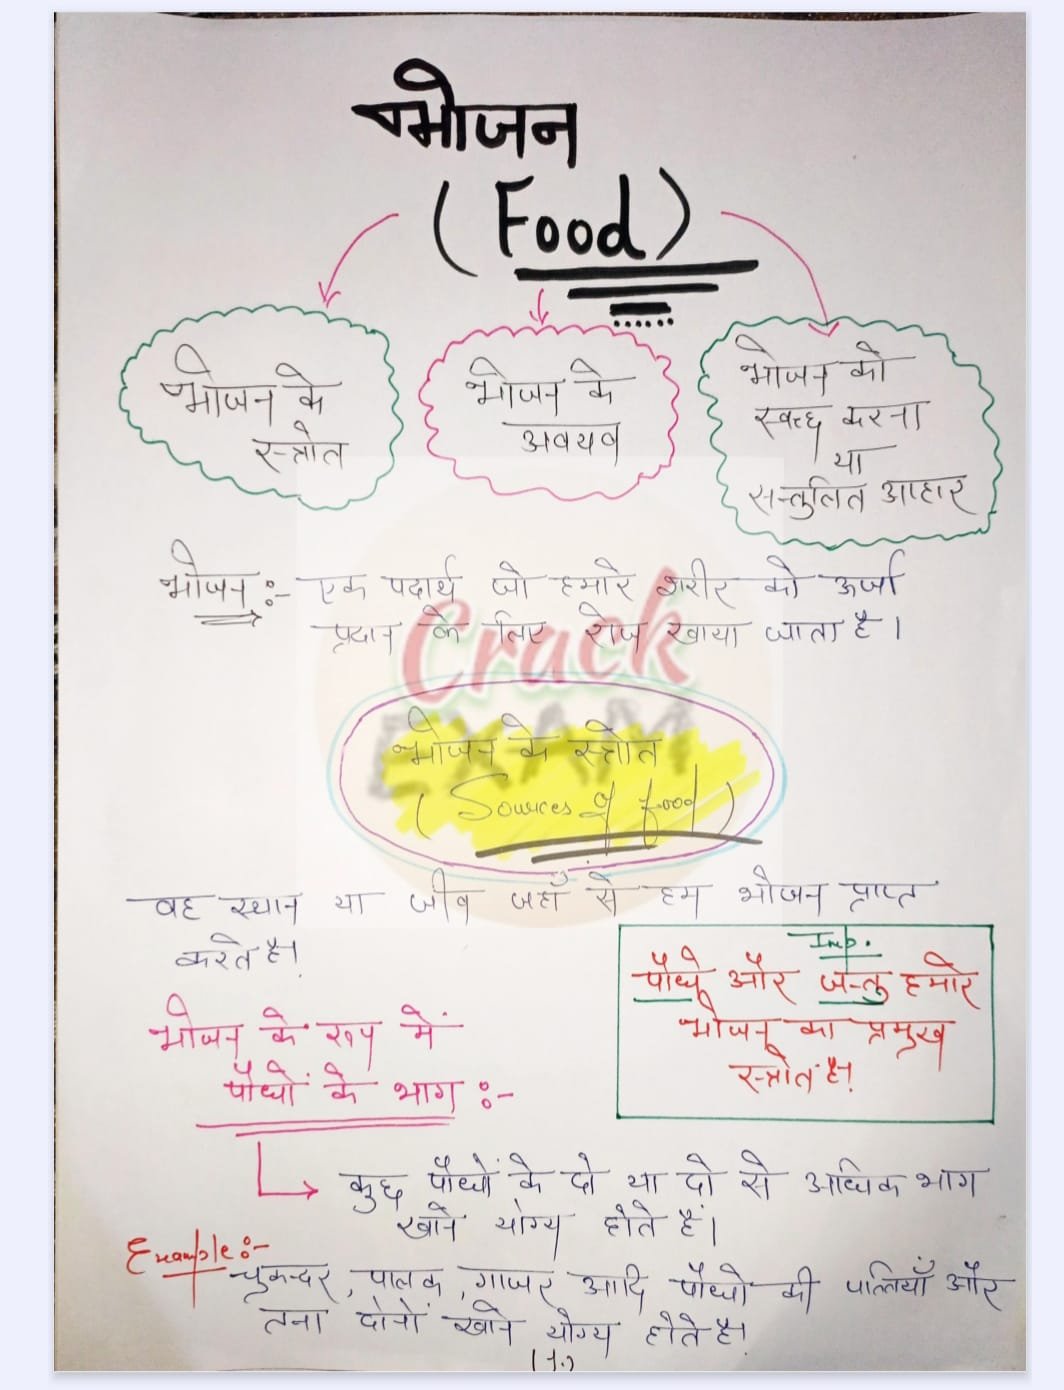 भोजन
(Food)
भोजन के
स्त्रोत
भोजन के
अवयव
भोजन को
स्वच्छ करना
या
सन्तुलित आहार
भोजन :- एक पदार्थ जो हमारे शरीर को ऊर्जा
प्रदान के लिए रोज खाया जाता है।
Crack
EXAM
भोजन के स्त्रोत
(Sources of food)
वह स्थान या जीव जहाँ से हम भोजन प्राप्त
करते है।
Imp.
पौधे और जन्तु हमारे
भोजन का प्रमुख
स्त्रोत है।
भोजन के रूप में
पौधों के भाग :-
कुछ पौधों के दो या दो से अधिक भाग
खाने योग्य होते हैं।
Example :-
चुकन्दर, पालक, गाजर आदि पौधो की पत्तियाँ और
तना दोनों खाने योग्य होते है।
(1.)